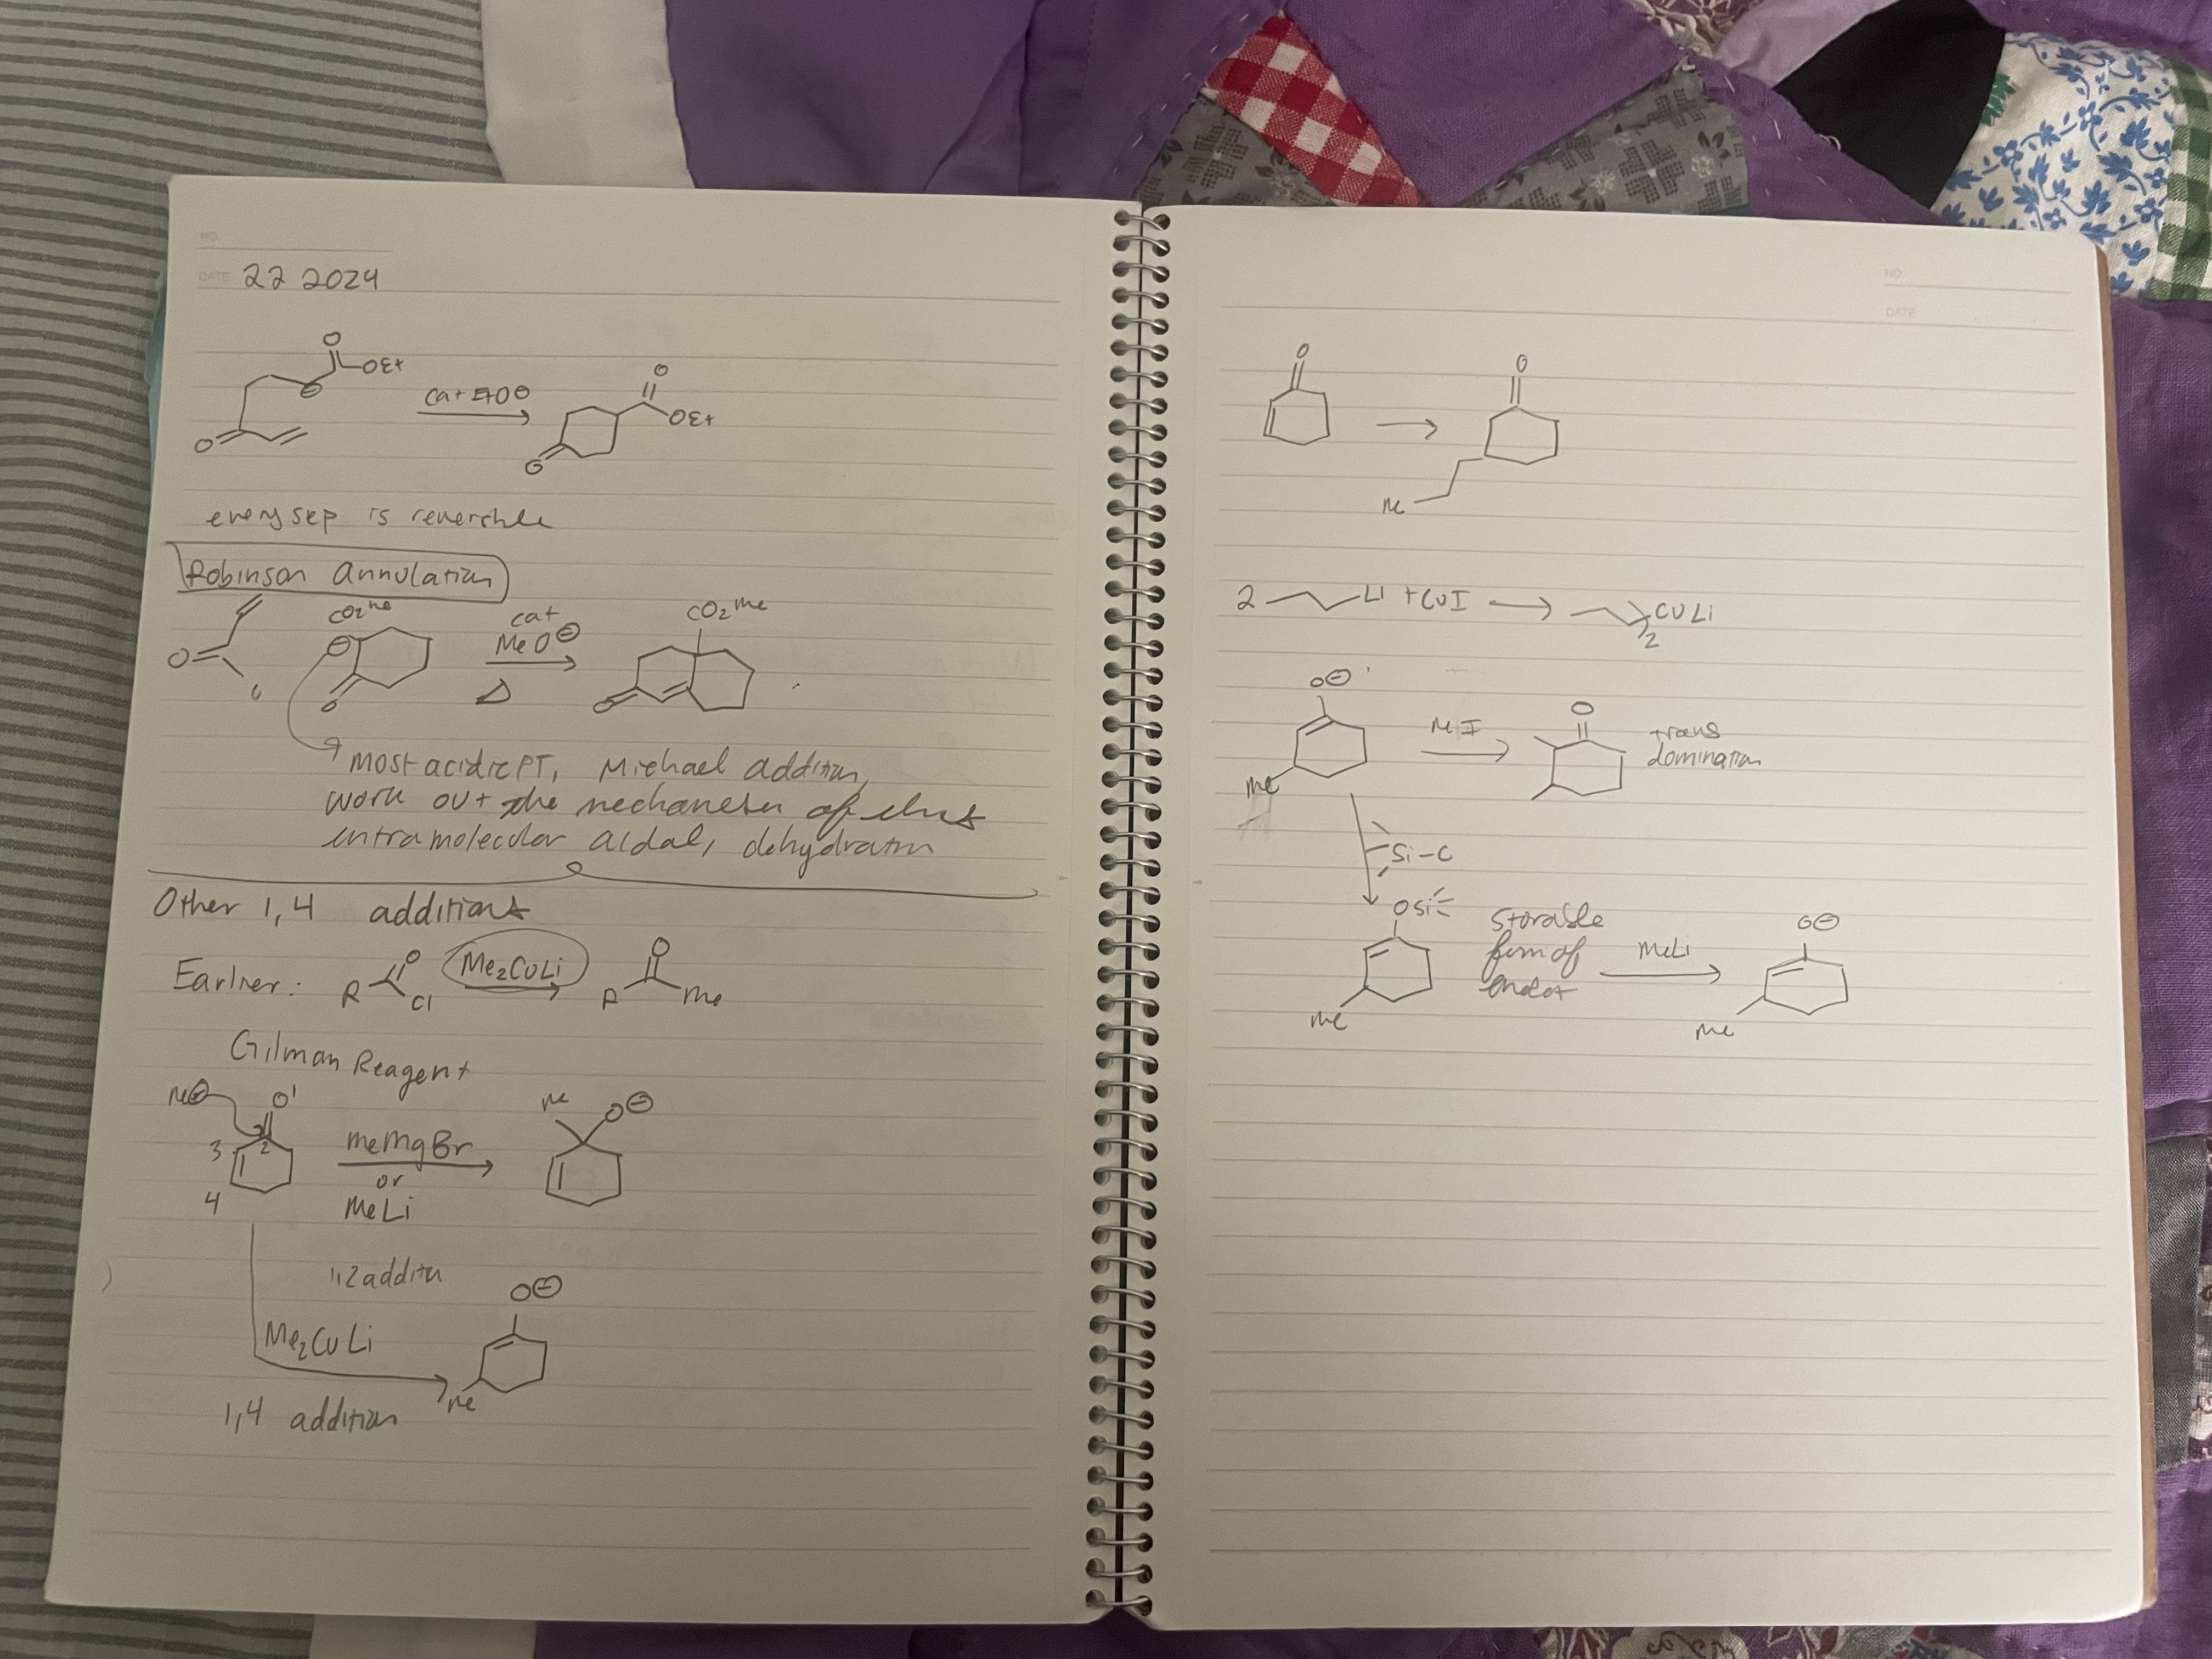 NO
DATE 22 2024
O
OEt
cat EtO⊖
O
OEt
O
O
every step is reversible
Robinson Annulation
CO2Me
cat
MeO⊖
Δ
CO2Me
O
O
O
most acidic PT, Michael addition,
work out the mechanism of this
intramolecular aldol, dehydration
Other 1,4 additions
Earlier:
R
O
Cl
Me2CuLi
R
O
Me
Gilman Reagent
Me⊖
O1
2
3
4
MeMgBr
or
MeLi
Me
O⊖
1,2 addition
Me2CuLi
O⊖
Me
1,4 addition
NO
DATE
O
O
Me
2
Li + CuI
)2
CuLi
O⊖
Me
MeI
O
trans
domination
Si-C
OSi
Me
storable
form of
MeLi
O⊖
Me